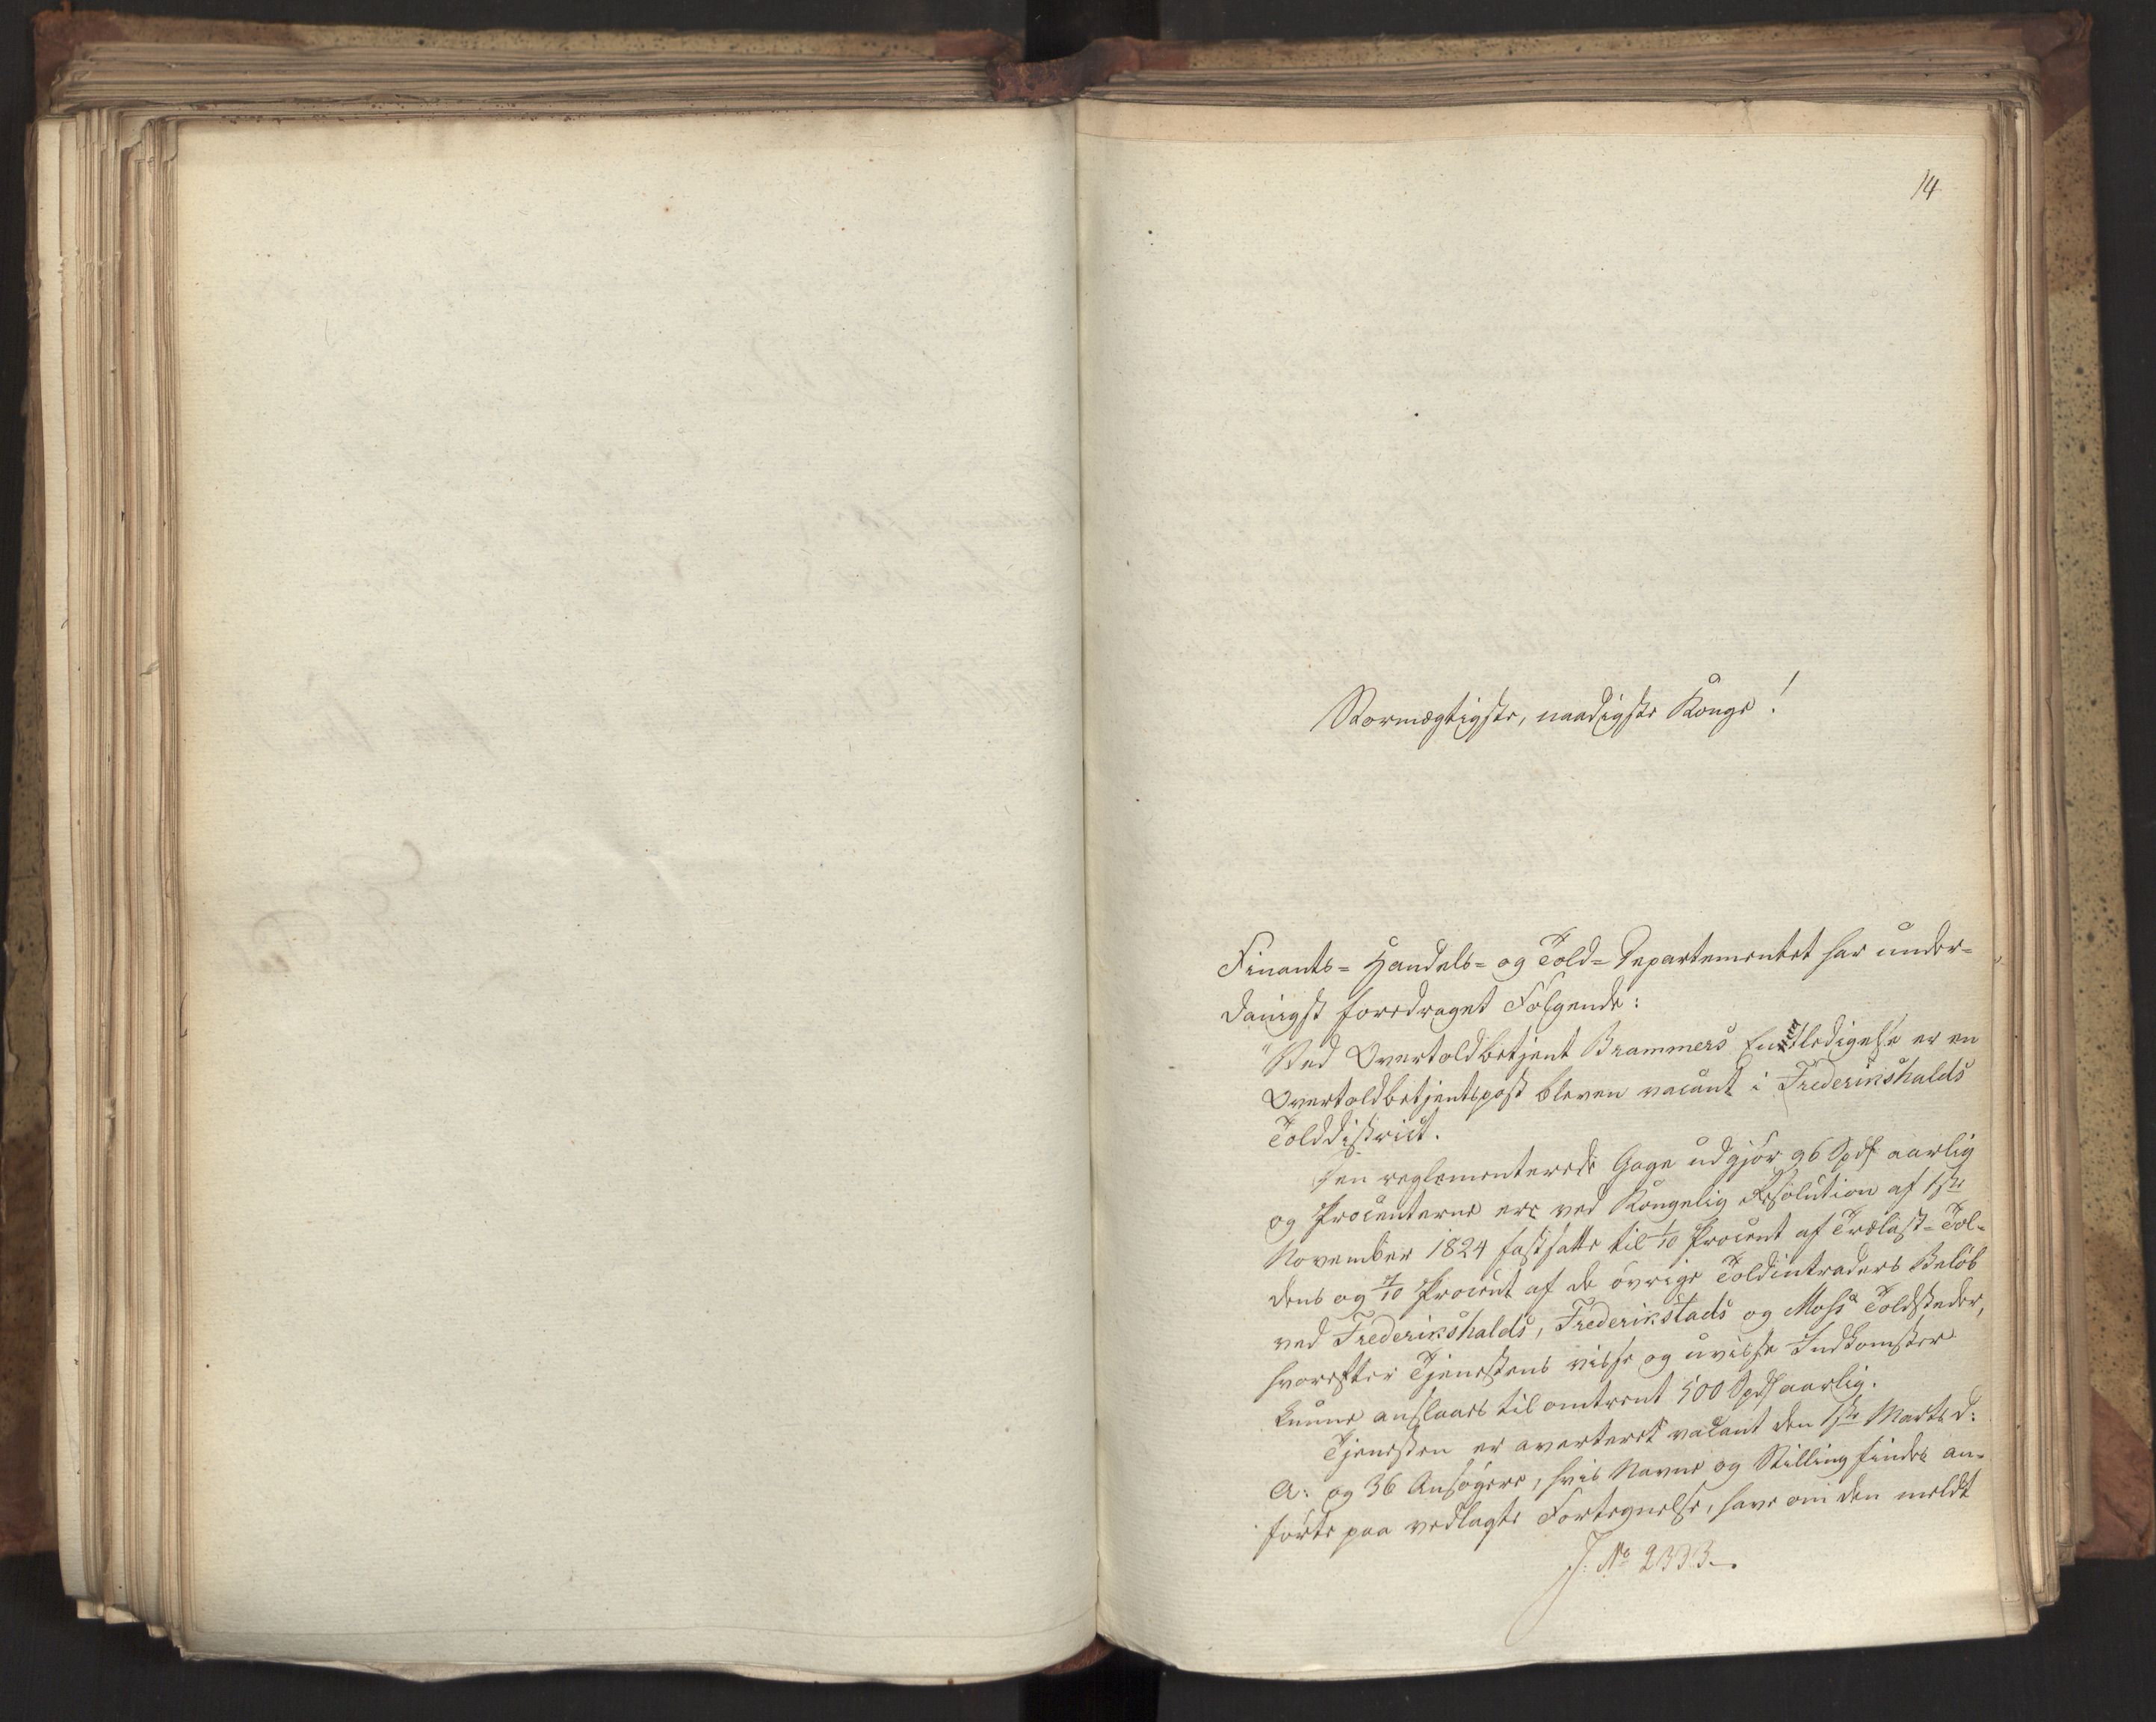 14
Stormægtigste, naadigste Konge!
Finants- Handels- og Told-Departementet har under-
danigst foredraget Følgende:
"Ved Overtoldbetjent Brammers Entledigelse er en
Overtoldbetjentspost bleven vacant i Frederikshalds
Tolddistrict.
Den reglementerede Gage udgjør 96 Spd aarlig
og Procenterne ere ved Kongelig Resolution af 1ste
November 1824 fastsatte til 1/10 Procent af Trælast-Tol-
dens og 7/10 Procent af de øvrige Toldintraders Beløb
ved Frederikshalds, Frederikstads og Moss Toldsteder,
hvorefter Tjenestens visse og uvisse Indkomster
kunne anslaaes til omtrent 500 Spd aarlig.
Tjenesten er averteret vacant den 1ste Marts d:
A: og 36 Ansøgere, hvis Navne og Stilling findes an-
førte paa vedlagte Fortegnelse, have om den meldt
J. No 2333.